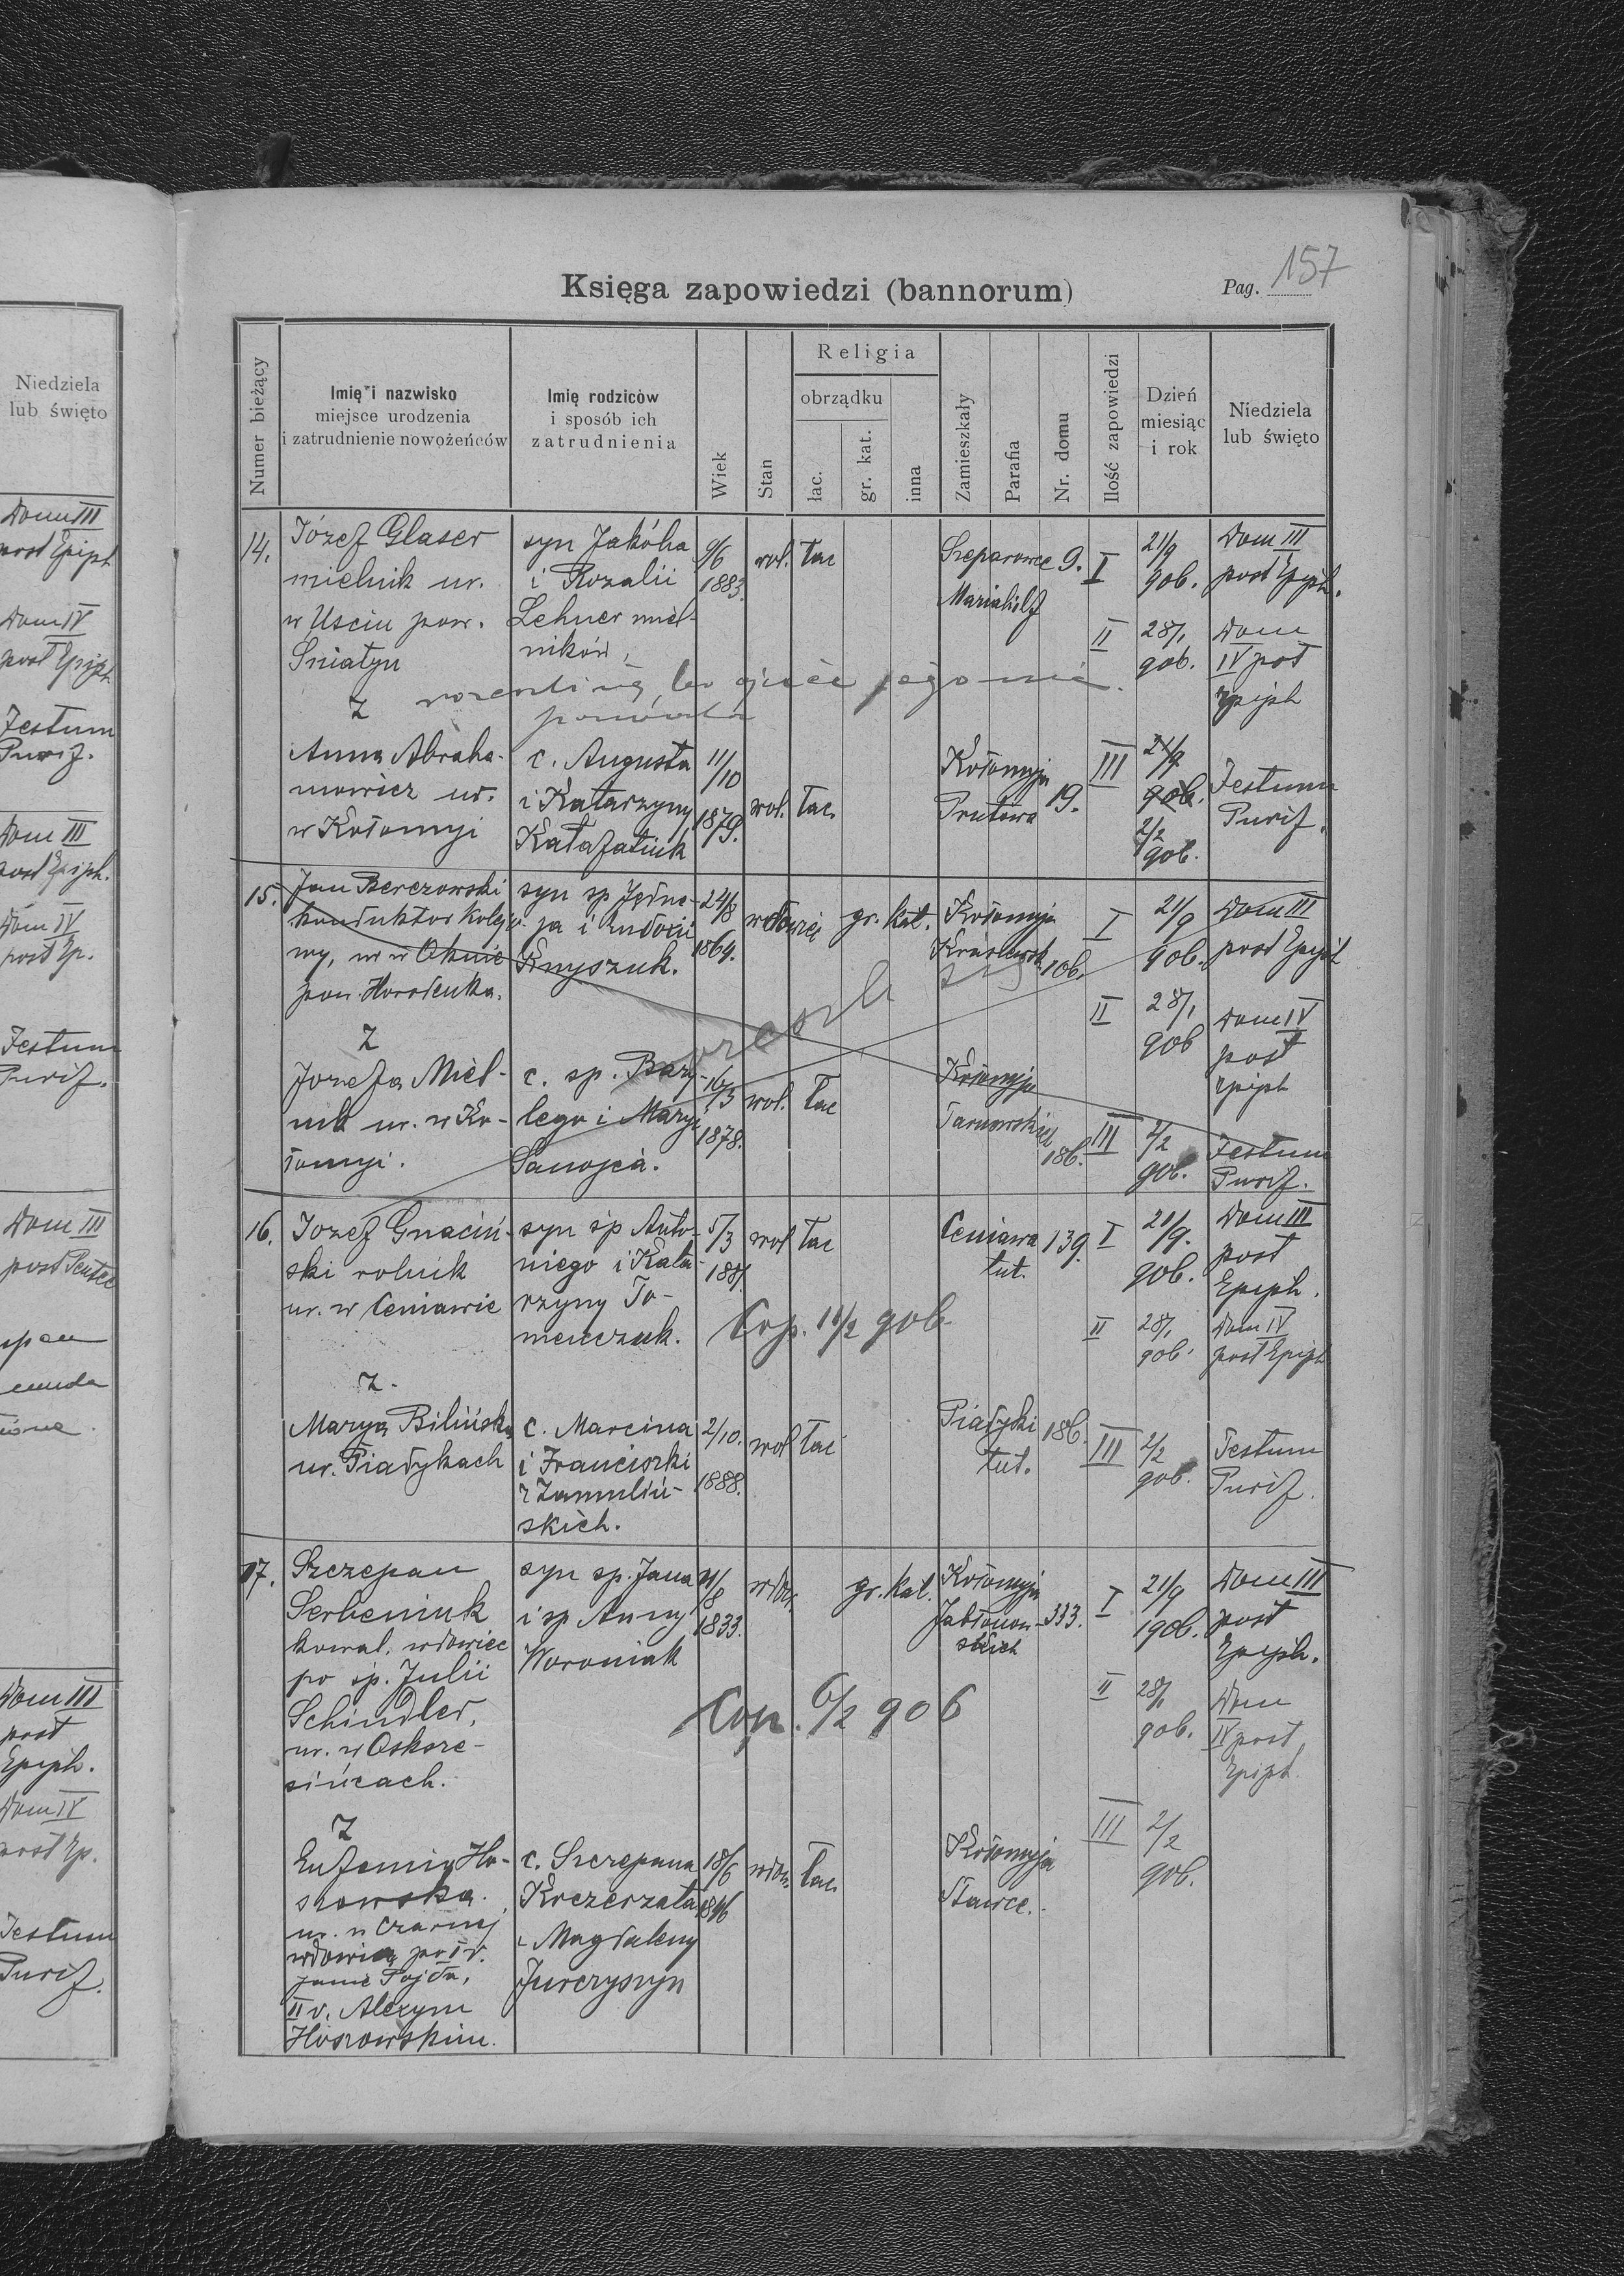 Księga zapowiedzi (bannorum)
Pag. 157
Numer bieżący
Imię i nazwisko
miejsce urodzenia
i zatrudnienie nowożeńców
Imię rodziców
i sposób ich
zatrudnienia
Wiek
Stan
Religia
obrządku
łac.
gr. kat.
inna
Zamieszkały
Parafia
Nr. domu
Ilość zapowiedzi
Dzień
miesiąc
i rok
Niedziela
lub święto
14.
Józef Glaser
mielnik ur.
w Usciu pow.
Sniatyn
syn Jakóba
i Rozalii
Lehner miel-
ników,
9/6
1883.
wol.
łac
Szeparowce 9.
Mariahilf
I
21/
906.
Dom III
post Epiph.
II
28/1
906.
Dom
IV post
Epiph
Z
Anna Abraha-
mowicz ur.
w Kołomyi
c. Augusta
i Katarzyny
Katafatiuk
11/
/10
1879.
wol.
łac.
Kołomyja
Prutowa 19.
III
906.
2/2
906.
Festum
Purif.
15.
Jan Berezowski
konduktor kolejo
wy, ur w Oknie
pow. Horodenka.
syn sp Jędrze-
ja i Eudoxii
24/8
1864.
wdowiec
gr. kat.
Kołomyja
106.
I
21/
906.
Dom III
post Epiph
II
28/1
906
Dom IV
post
Epiph
Z
Jozefa Miel-
nik ur. w Ko-
łomyi.
c. sp. Bazy-
lego i Maryi
Sanojca.
16/3
1878.
wol.
łac
Kołomyja
186.
III
2/2
906.
Festum
Purif.
16.
Jozef Gnaciń-
ski rolnik
ur. w Ceniawie
syn śp Anto-
niego i Kata
rzyny To-
menczuk.
5/3
188
wol
łac
Ceniawa
tut.
139.
I
21/
906.
Dom III
post
Epiph.
Cop. 11/2 906
II
28/1
906.
Dom IV
post Epiph
Z.
Marya Bilińska
ur. Piadykach
c. Marcina
i Franciszki
z Zamuliń-
skich.
2/10.
1888.
wol
łac
Piadyki
tut.
186.
III
2/2
906.
Festum
Purif.
17.
Szczepan
Serbeniuk
kowal. wdowiec
po śp. Julii
Schindler,
ur. w Oskrze-
sińcach.
syn sp. Jana
i sp Anny
Woroniak
/8
1833.
wdow.
gr. kat.
Kołomyja
Jabłonow-
skich
333.
I
21/
1906.
Dom III
post
Epiph.
Cop. 6/2 906
II
28/1
906.
Dom
IV post
Epiph.
Z
Eufemia Ho-
szowska.
ur. w Czarnej
wdowa po I v.
Janie Pajda,
II v. Alexym
Hoszowskim.
c. Szczepana
i Magdaleny
Jurczyszyn
18/6
wdow.
łac.
Kołomyja
Stawce.
III
2/2
906.
Niedziela
lub święto
Dom III
post Epiph
Dom IV
post Epiph
Festum
Purif.
Dom III
post Epiph.
Dom IV
post Ep.
Festum
Purif.
Dom III
Dom III
post
Epiph.
Dom IV
post Ep.
Festum
Purif.